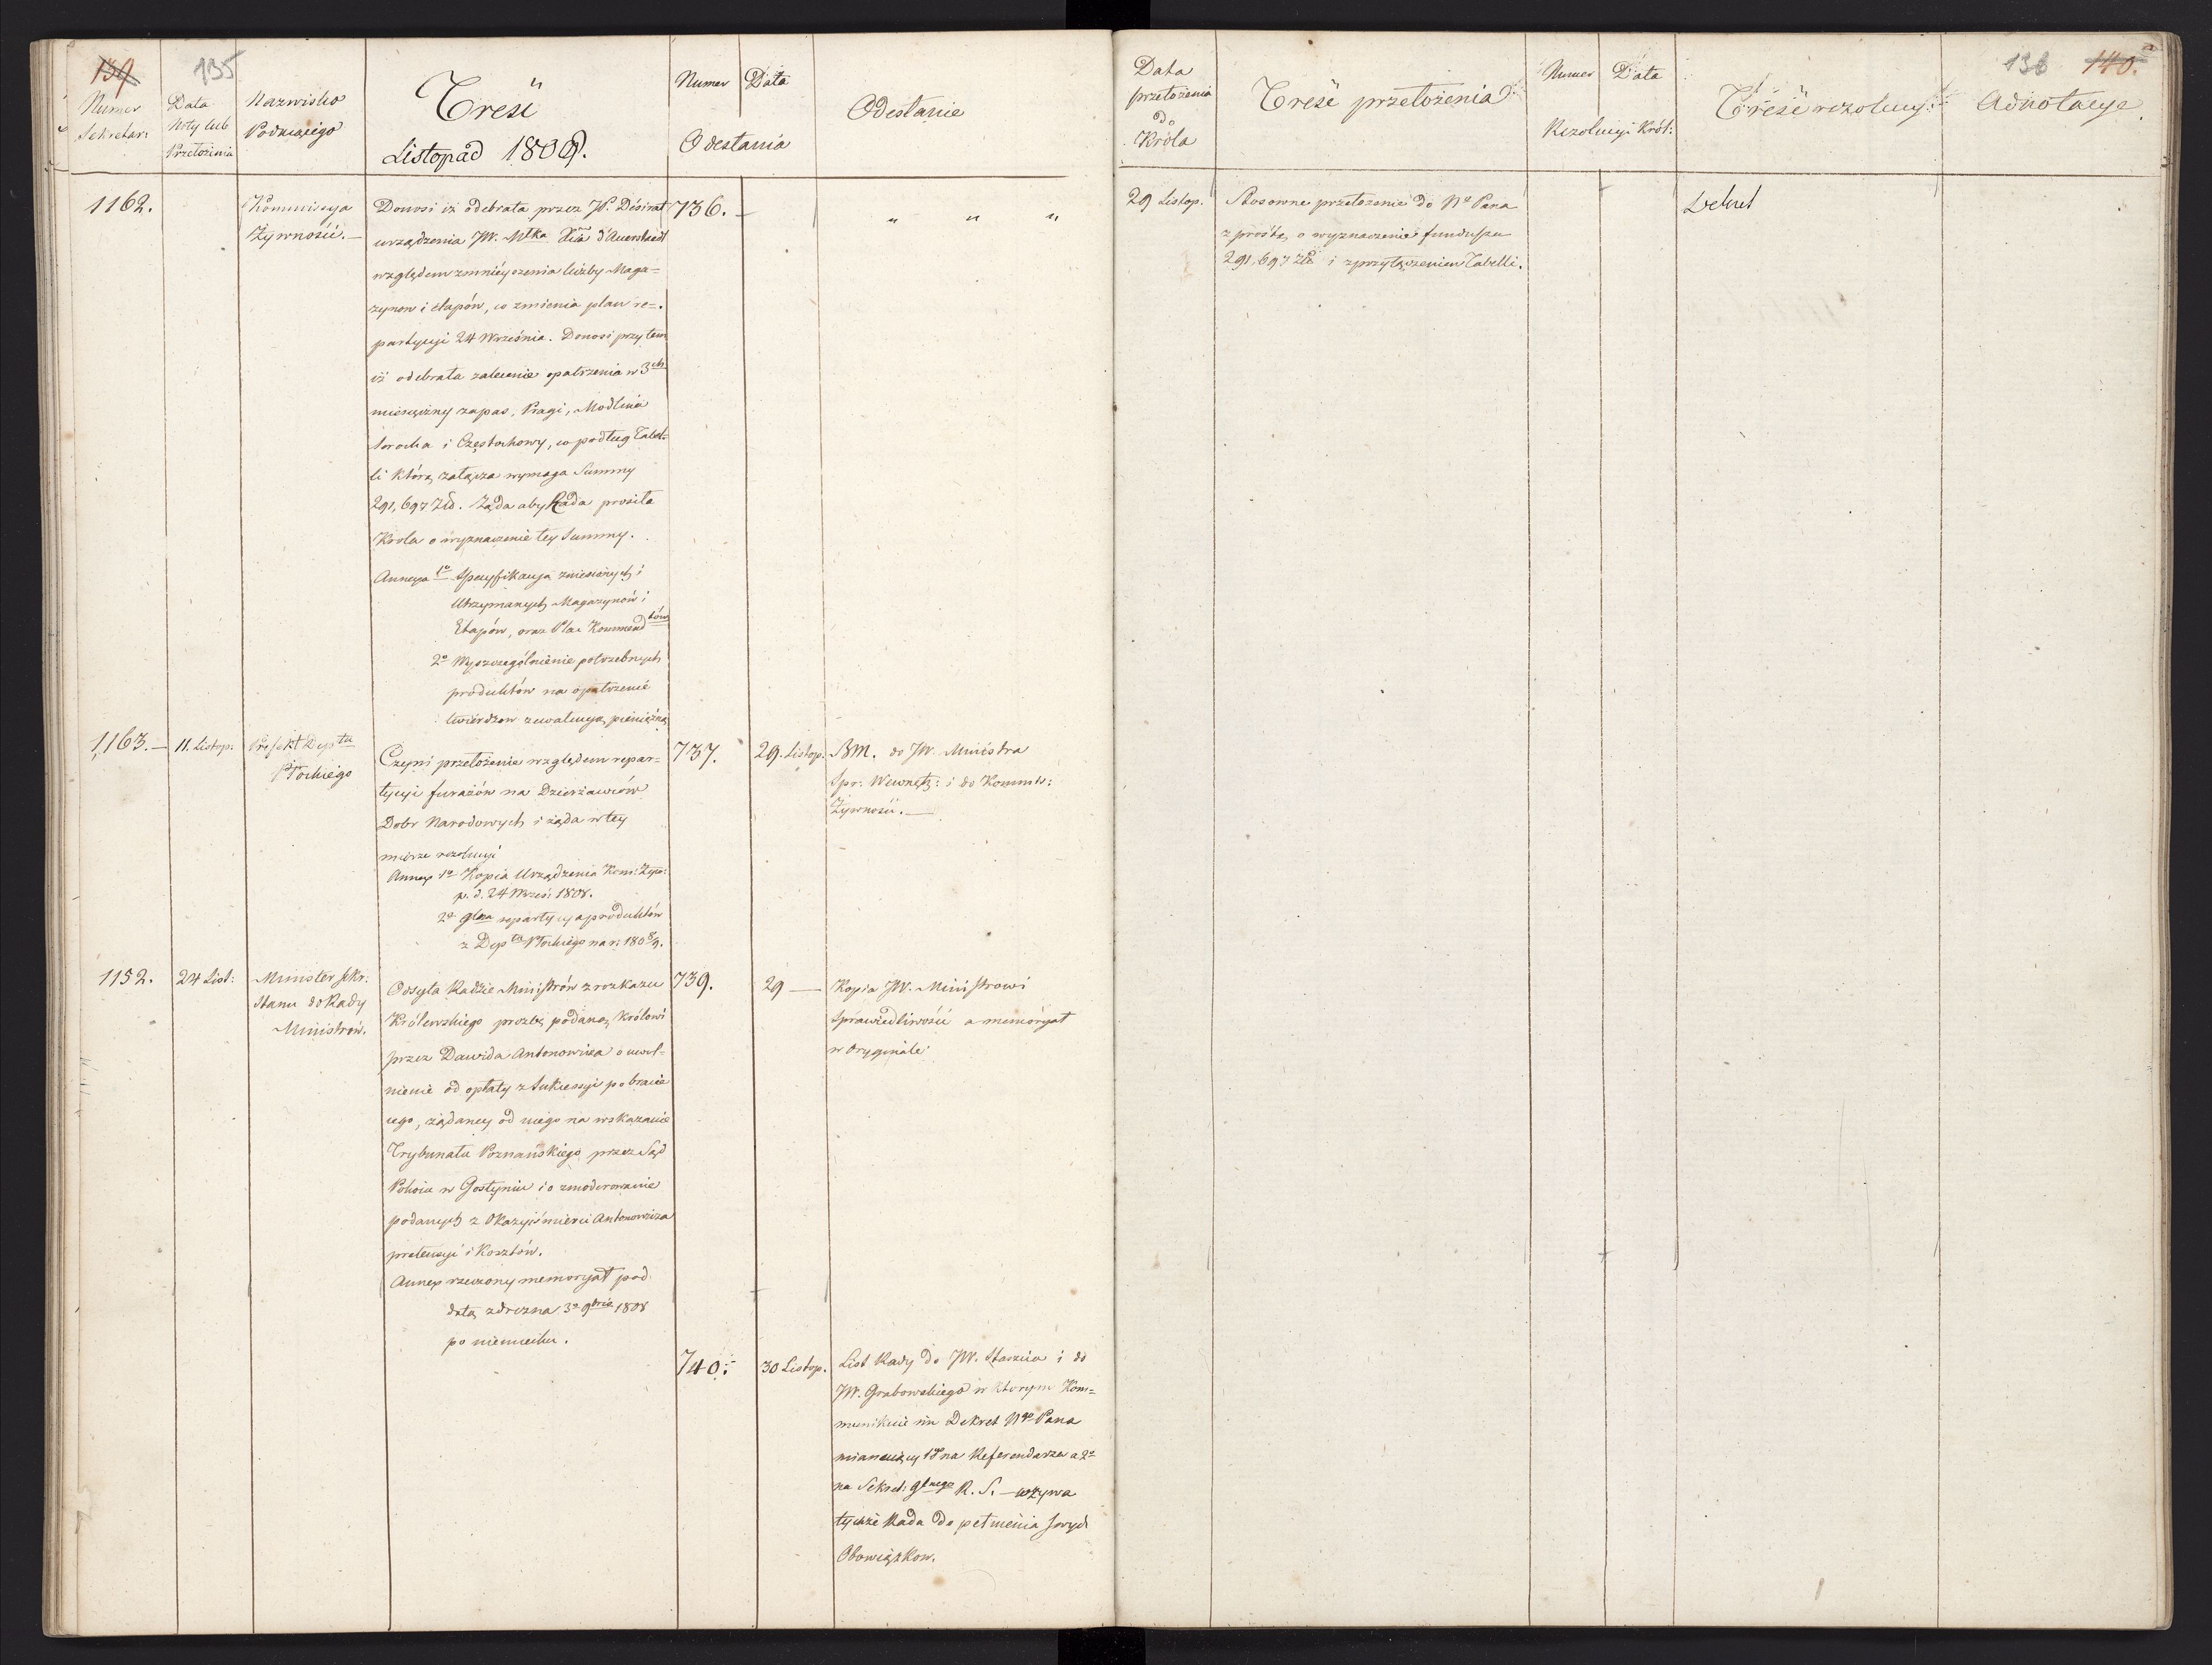 139 135
Numer Sekretar:
Data Noty lub Przełożenia
Nazwisko Podaiącego
Treść
Listopad 1808.
Numer Data
Odesłania
Odesłanie
1162.
Kommissya
Żywności.—
Donosi iż odebrała przez JP. Désirat
urządzenia JW. Młka Xia d'Auerstaedt
względem zmnieyszenia liczby Maga=
zynow i etapów, co zmienia plan re=
partycyi 24 Września. Donosi przytem
iż odebrała zalecenie opatrzenia w 3ch
miesięczny zapas, Pragi, Modlina
Serocka i Częstochowy, co podług Tabel=
li którą załącza wymaga Summy
291,697 Złd. Żąda aby Rada prosiła
Krola o wyznaczenie tey Summy.
Annexa 1o Specyfikacya zniesionych i
Utrzymanych Magazynów i
Etapów, oraz Plac Kommendtów
2o Wyszczególnienie potrzebnych
produktów na opatrzenie
twierdzow z ewaluacyą pieniężną
736.—
" " "
1163.— 11. Listop:
Prefekt Depttu
Płockiego
Czyni przełożenie względem repar=
tycyi furażów na Dzierżawców
Dobr Narodowych i żąda w tey
mierze rezolucyi
Annex 1o Kopia Urządzenia Kom: Żyw:
p. d. 24 Wrześ: 1808.
2o glna repartycya produktów
z Deptu Płockiego na r: 1808/9.
737. 29. Listop.
BM. do JW. Ministra
Spr: Wewnętz: i do Kommis:
Żywności.—
1152. 24 List:
Minister Sekr:
Stanu do Rady
Ministrów.
Odsyła Radzie Ministrów z rozkazu
Królewskiego prozbę podaną Królowi
przez Dawida Antonowicza o uwol=
nienie od opłaty z Sukcessyi po bracie
iego, żądaney od niego na wskazanie
Trybunału Poznańskiego przez Sąd
Pokoiu w Gostyniu i o zmoderowanie
podanych z Okazyi śmierci Antonowicza
pretensyi i Kosztów.
Annex rzeczony memoryał pod
datą z drezna 3o 9bris 1808
po niemiecku.
739. 29 —
Kopia JW. Ministrowi
Sprawiedliwości a memoryał
w Oryginale
740. 30 Listop.
List Rady do JW. Staszica i do
JW. Grabowskiego w ktorym Kom=
munikuie im Dekret Ngo Pana
mianuiący 1o na Referendarza a 2o
na Sekret: glnego R. S. — wzywa
tychże Rada do pełnienia swych
Obowiązkow.
136 140.
Data przełożenia do Króla
Treść przełożenia
Numer Data
Rezolucyi Król:
Treść rezolucyi
Adnotacye
29 Listop.
Stosowne przełożenie do Ngo Pana
z prośbą o wyznaczenie funduszu
291,697 Złd i z przyłączeniem Tabelli.
Dekret